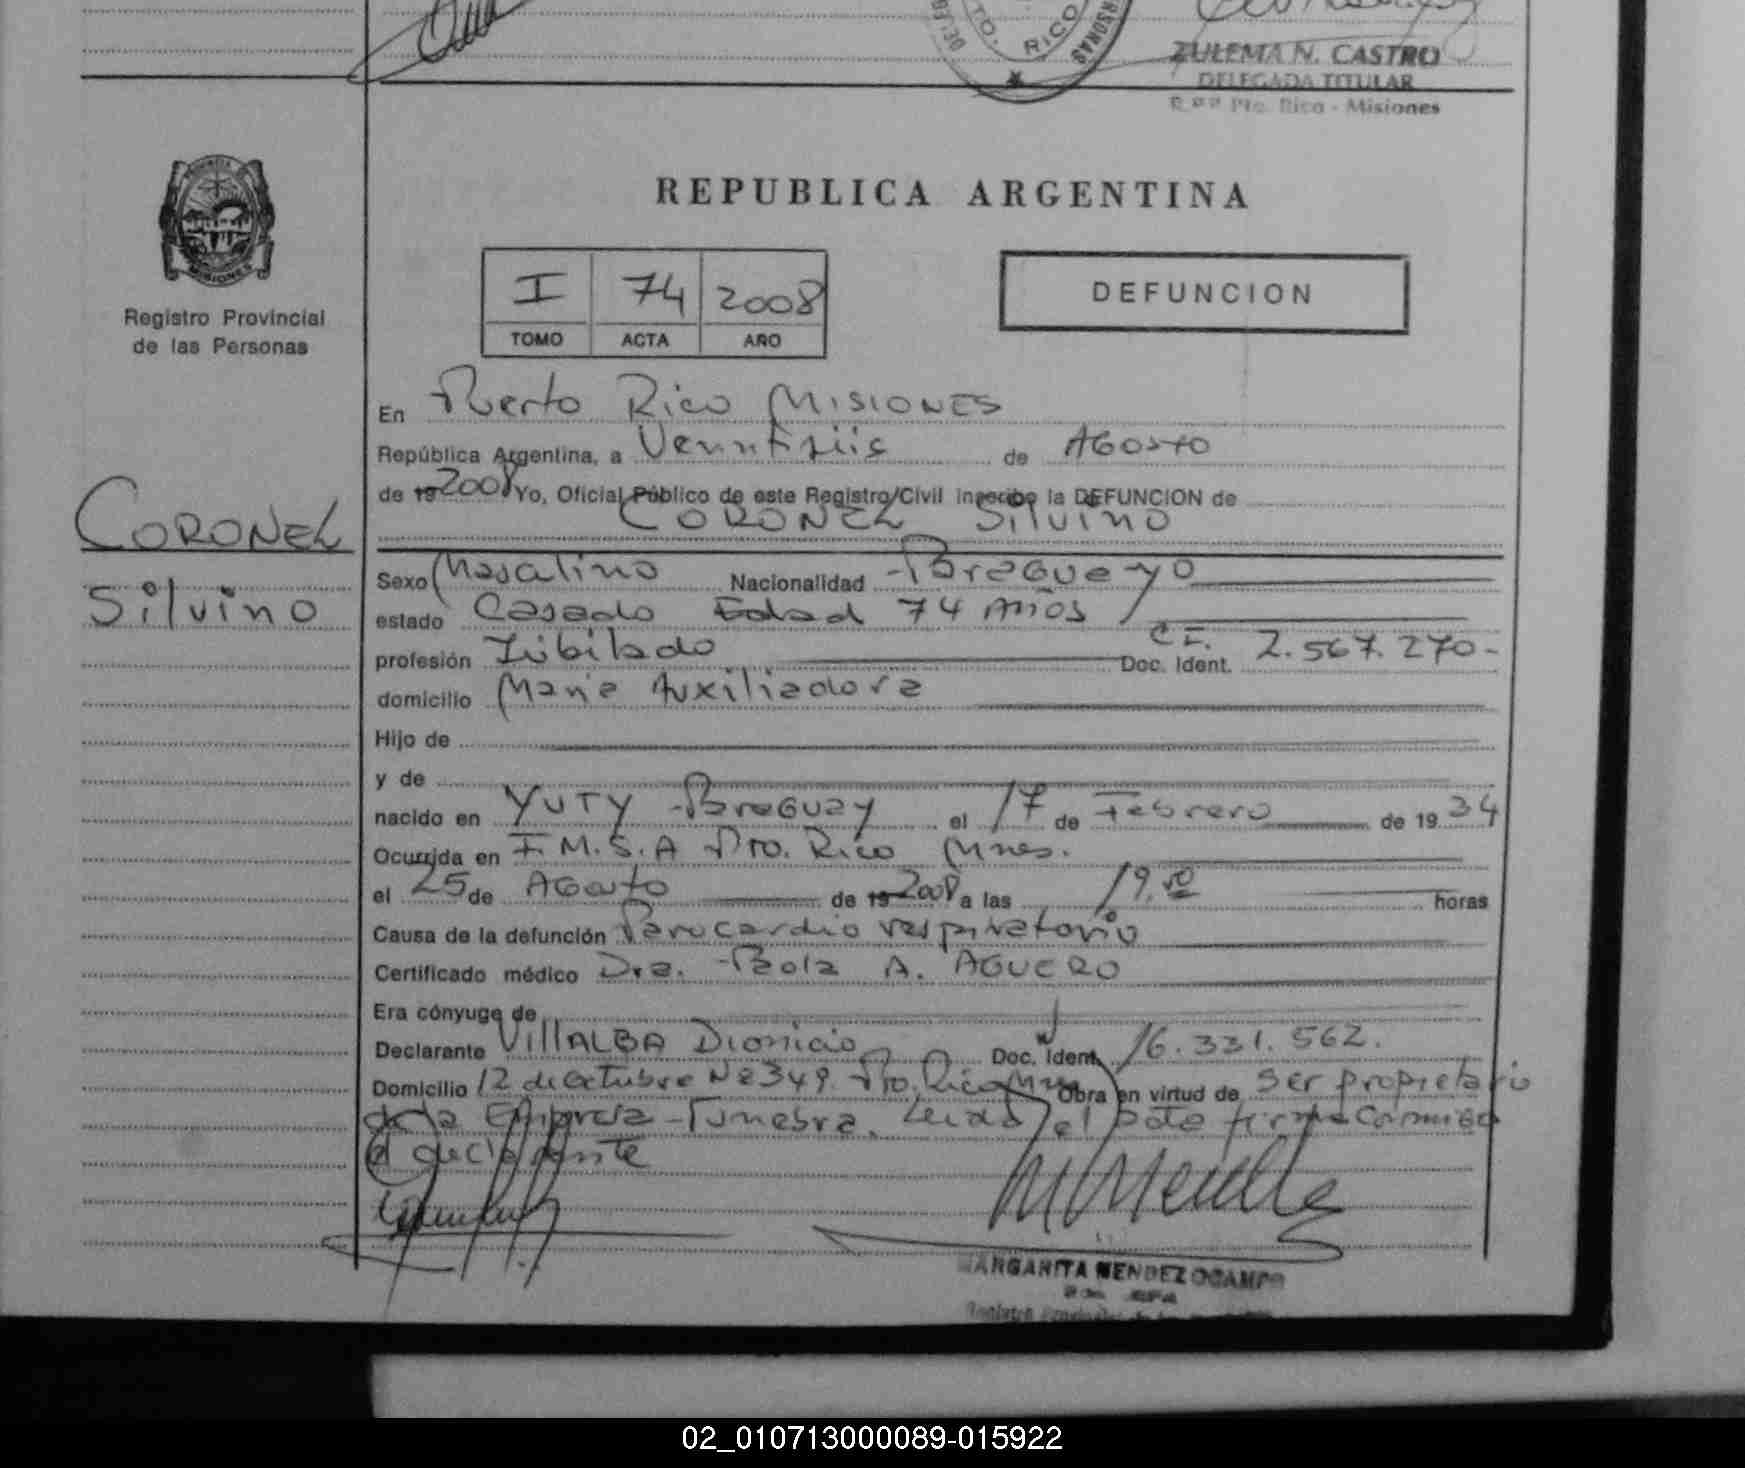 TO. RICO
PERSONAS
ZULEMA N. CASTRO
DELEGADA TITULAR
Pto. Rico - Misiones
MISIONES
Registro Provincial
de las Personas
REPUBLICA ARGENTINA
I 74 2008
TOMO ACTA AÑO
DEFUNCION
En Puerto Rico MISIONES
República Argentina, a Veintiseis de AGosto
de 19 2008 Yo, Oficial Público de este Registro/Civil inscribe la DEFUNCION de
CORONEL Silvino
CORONEL
Silvino
Sexo Masculino Nacionalidad Paraguayo
estado Casado Edad 74 Años
profesión Jubilado Doc. Ident. C.I. 2.567.270-
domicilio Maria Auxiliadora
Hijo de
y de
nacido en YUTY Paraguay el 17 de Febrero de 19 34
Ocurrida en F.M.S.A Pto. Rico Mnes.
el 25 de AGosto de 19 2008 a las 19,00 horas
Causa de la defunción Parocardio respiratorio
Certificado médico Dra. Paola A. AGUERO
Era cónyuge de
Declarante VillALBA Dionicio Doc. Ident. 16.331.562.
Domicilio 12 de Octubre Nº 349. Pto. Rico Mnes Obra en virtud de ser propietario
de la Empresa Funebre. Leida el acta firma Conmigo
el declarante
MARGARITA MENDEZ OCAMPO
02_010713000089-015922